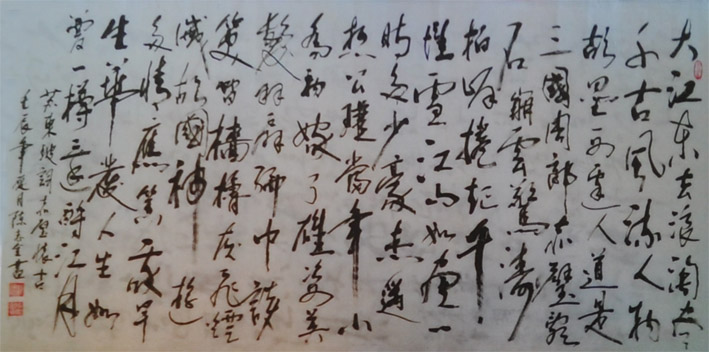 大江东去浪淘尽
千古風流人物
故壘西邊人道是
三國周郎赤壁亂
石崩雲驚濤
拍岸捲起千
堆雪江山如画一
時多少豪杰遥
想公瑾當年小
喬初嫁了雄姿英
發羽扇綸巾談
笑間檣櫓灰飛煙
滅故國神遊
多情應笑我早
生華發人生如
夢一樽還酹江月
苏東坡詞赤壁懷古
壬辰年夏月陈书